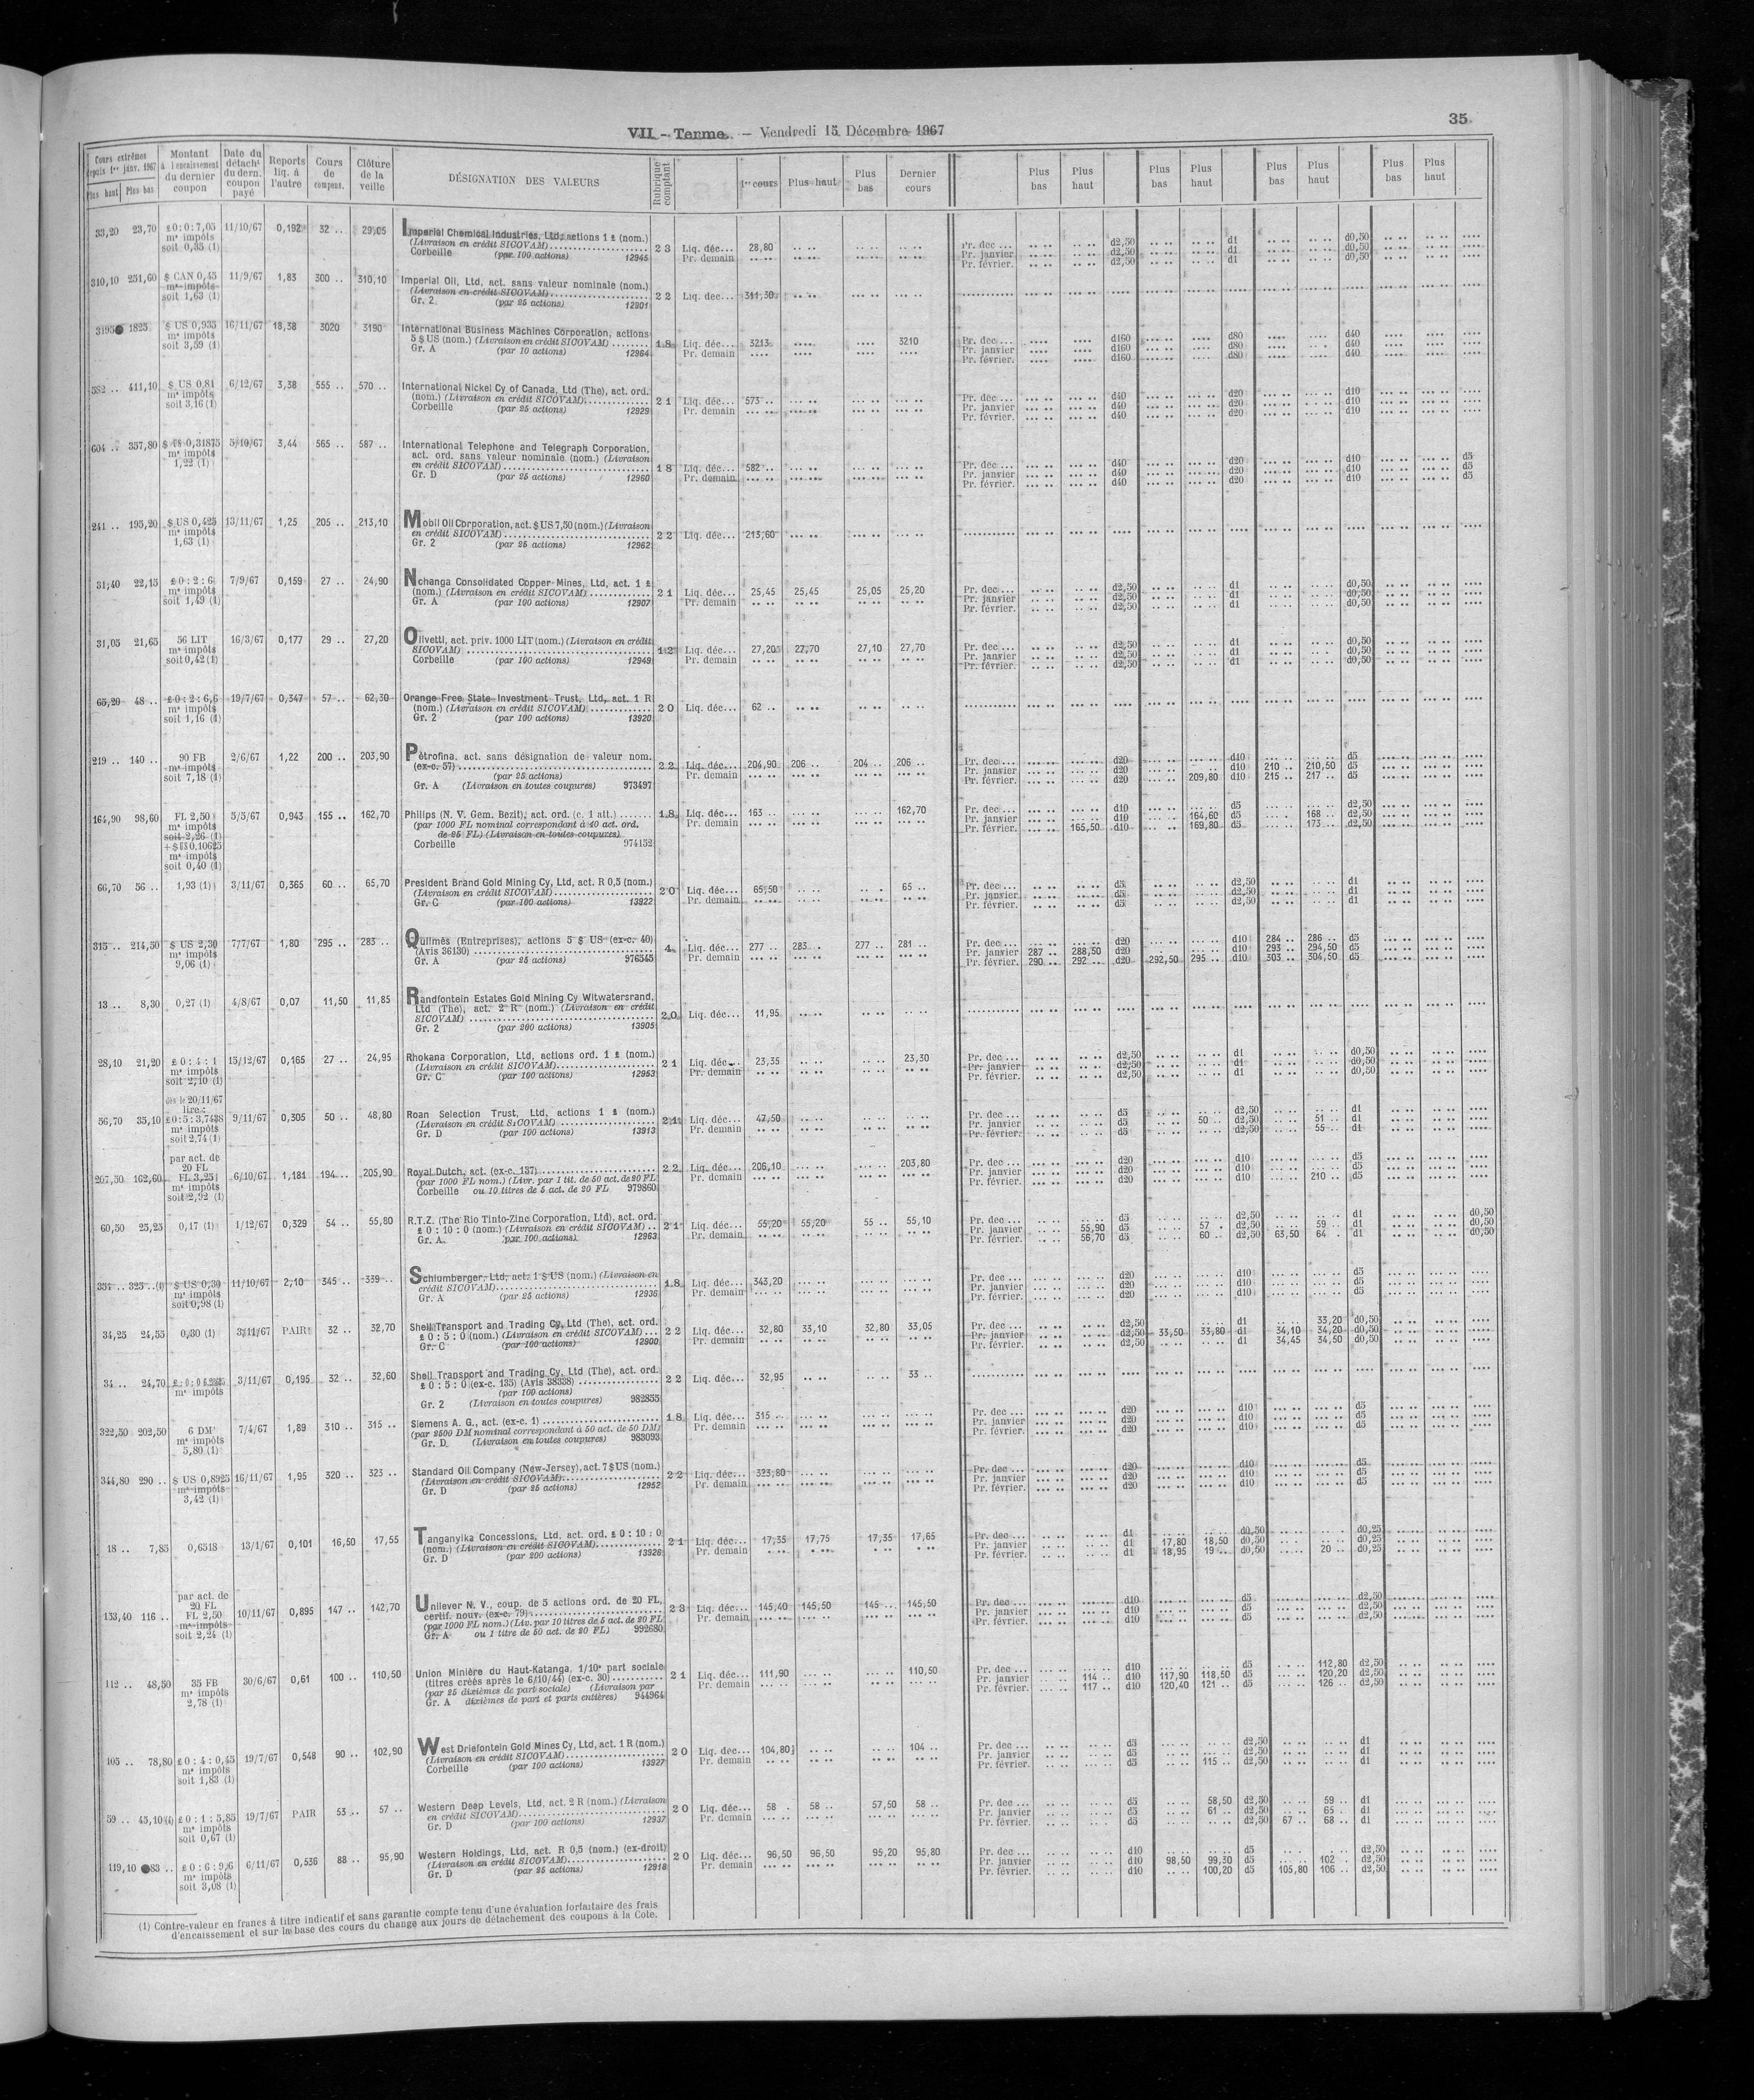 VII. - Terme. — Vendredi 15 Décembre 1967
35
Cours extrêmes depuis 1er janv. 1967 Plus haut Plus bas | Montant à l'encaissement du dernier coupon | Date du détacht du dern. coupon payé | Reports liq. à l'autre | Cours de compens. | Clôture de la veille | DÉSIGNATION DES VALEURS | Rubrique comptant | 1er cours | Plus haut | Plus bas | Dernier cours | Plus bas | Plus haut | Plus bas | Plus haut | Plus bas | Plus haut | Plus bas | Plus haut
33,20 23,70 £ 0 : 0 : 7,05 11/10/67 0,192 32 .. 29,05 Imperial Chemical Industries, Ltd, actions 1 £ (nom.)
me impôts soit 0,35 (1) (Livraison en crédit SICOVAM) 23 Liq. déc... 28,80 Pr. dec ... d2,50 d1 d0,50
Corbeille (par 100 actions) 12945 Pr. demain Pr. janvier d2,50 d1 d0,50
Pr. février. d2,50 d1 d0,50
310,10 251,60 $ CAN 0,45 11/9/67 1,83 300 .. 310,10 Imperial Oil, Ltd, act. sans valeur nominale (nom.)
me impôts soit 1,63 (1) (Livraison en crédit SICOVAM) 22 Liq. dec... 311,30
Gr. 2 (par 25 actions) 12901
3195 1825 $ US 0,935 16/11/67 18,38 3020 3190 International Business Machines Corporation, actions
me impôts soit 3,59 (1) 5 $ US (nom.) (Livraison en crédit SICOVAM) 18 Liq. déc... 3213 3210 Pr. dec ... d160 d80 d40
Gr. A (par 10 actions) 12964 Pr. demain Pr. janvier d160 d80 d40
Pr. février. d160 d80 d40
582 .. 411,10 $ US 0,81 6/12/67 3,38 555 .. 570 .. International Nickel Cy of Canada, Ltd (The), act. ord.
me impôts soit 3,16 (1) (nom.) (Livraison en crédit SICOVAM) 21 Liq. déc... 573 .. Pr. dec ... d40 d20 d10
Corbeille (par 25 actions) 12929 Pr. demain Pr. janvier d40 d20 d10
Pr. février. d40 d20 d10
604 .. 357,80 $ US 0,31875 5/10/67 3,44 565 .. 587 .. International Telephone and Telegraph Corporation,
me impôts 1,22 (1) act. ord. sans valeur nominale (nom.) (Livraison
en crédit SICOVAM) 18 Liq. déc... 582 .. Pr. dec ... d40 d20 d10 d5
Gr. D (par 25 actions) 12960 Pr. demain Pr. janvier d40 d20 d10 d5
Pr. février. d40 d20 d10 d5
241 .. 195,20 $ US 0,425 13/11/67 1,25 205 .. 213,10 Mobil Oil Corporation, act. $ US 7,50 (nom.) (Livraison
me impôts 1,63 (1) en crédit SICOVAM) 22 Liq. déc... 213,60
Gr. 2 (par 25 actions) 12962
31,40 22,15 £ 0 : 2 : 6 7/9/67 0,159 27 .. 24,90 Nchanga Consolidated Copper Mines, Ltd, act. 1 £
me impôts soit 1,49 (1) (nom.) (Livraison en crédit SICOVAM) 21 Liq. déc... 25,45 25,45 25,05 25,20 Pr. dec ... d2,50 d1 d0,50
Gr. A (par 100 actions) 12907 Pr. demain Pr. janvier d2,50 d1 d0,50
Pr. février. d2,50 d1 d0,50
31,05 21,65 56 LIT 16/3/67 0,177 29 .. 27,20 Olivetti, act. priv. 1000 LIT (nom.) (Livraison en crédit
me impôts soit 0,42 (1) SICOVAM) 12 Liq. déc... 27,20 27,70 27,10 27,70 Pr. dec ... d2,50 d1 d0,50
Corbeille (par 100 actions) 12949 Pr. demain Pr. janvier d2,50 d1 d0,50
Pr. février. d2,50 d1 d0,50
65,20 48 .. £ 0 : 2 : 6,6 19/7/67 0,347 57 .. 62,30 Orange Free State Investment Trust, Ltd, act. 1 R
me impôts soit 1,16 (1) (nom.) (Livraison en crédit SICOVAM) 20 Liq. déc... 62 ..
Gr. 2 (par 100 actions) 13920
219 .. 140 .. 90 FB 2/6/67 1,22 200 .. 203,90 Pétrofina, act. sans désignation de valeur nom.
me impôts soit 7,18 (1) (ex-c. 57) 22 Liq. déc... 204,90 206 .. 204 .. 206 .. Pr. dec ... d20 d10 d5
(par 25 actions) Pr. demain Pr. janvier d20 d10 210 .. 210,50 d5
Gr. A (Livraison en toutes coupures) 973497 Pr. février. d20 209,80 d10 215 .. 217 .. d5
164,90 98,60 FL 2,50 5/5/67 0,943 155 .. 162,70 Philips (N. V. Gem. Bezit), act. ord. (c. 1 att.) 18 Liq. déc... 163 .. 162,70 Pr. dec ... d10 d5 d2,50
me impôts soit 2,26 (1) + $ US 0,10625 me impôts soit 0,40 (1) (par 1000 FL nominal correspondant à 40 act. ord. Pr. demain Pr. janvier d10 164,60 d5 168 .. d2,50
de 25 FL) (Livraison en toutes coupures) Pr. février. 165,50 d10 169,80 d5 173 .. d2,50
Corbeille 974152
66,70 56 .. 1,93 (1) 3/11/67 0,365 60 .. 65,70 President Brand Gold Mining Cy, Ltd, act. R 0,5 (nom.)
(Livraison en crédit SICOVAM) 20 Liq. déc... 65,50 65 .. Pr. dec ... d5 d2,50 d1
Gr. C (par 100 actions) 13922 Pr. demain Pr. janvier d5 d2,50 d1
Pr. février. d5 d2,50 d1
315 .. 214,50 $ US 2,30 7/7/67 1,80 295 .. 283 .. Quilmès (Entreprises), actions 5 $ US (ex-c. 40)
me impôts 9,06 (1) (Avis 36130) 4 Liq. déc... 277 .. 283 .. 277 .. 281 .. Pr. dec ... d20 d10 284 .. 286 .. d5
Gr. A (par 25 actions) 976545 Pr. demain Pr. janvier 287 .. 288,50 d20 d10 293 .. 294,50 d5
Pr. février. 290 .. 292 .. d20 292,50 295 .. d10 303 .. 304,50 d5
13 .. 8,30 0,27 (1) 4/8/67 0,07 11,50 11,85 Randfontein Estates Gold Mining Cy Witwatersrand,
Ltd (The), act. 2 R (nom.) (Livraison en crédit
SICOVAM) 20 Liq. déc... 11,95
Gr. 2 (par 200 actions) 13905
28,10 21,20 £ 0 : 4 : 1 15/12/67 0,165 27 .. 24,95 Rhokana Corporation, Ltd, actions ord. 1 £ (nom.)
me impôts soit 2,10 (1) (Livraison en crédit SICOVAM) 21 Liq. déc... 23,35 23,30 Pr. dec ... d2,50 d1 d0,50
Gr. C (par 100 actions) 12953 Pr. demain Pr. janvier d2,50 d1 d0,50
Pr. février. d2,50 d1 d0,50
56,70 35,10 dès le 20/11/67 lire : £ 0 : 5 : 3,7438 9/11/67 0,305 50 .. 48,80 Roan Selection Trust, Ltd, actions 1 £ (nom.)
me impôts soit 2,74 (1) (Livraison en crédit SICOVAM) 21 Liq. déc... 47,50 Pr. dec ... d5 d2,50 d1
Gr. D (par 100 actions) 13913 Pr. demain Pr. janvier d5 50 .. d2,50 51 .. d1
Pr. février. d5 d2,50 55 .. d1
207,50 162,60 par act. de 20 FL FL 3,25 6/10/67 1,184 194 .. 205,90 Royal Dutch, act. (ex-c. 137) 22 Liq. déc... 206,10 203,80 Pr. dec ... d20 d10 d5
me impôts soit 2,92 (1) (par 1000 FL nom.) (Livr. par 1 tit. de 50 act. de 20 FL Pr. demain Pr. janvier d20 d10 d5
Corbeille ou 10 titres de 5 act. de 20 FL 979860 Pr. février. d20 d10 210 .. d5
60,50 25,25 0,17 (1) 1/12/67 0,329 54 .. 55,80 R.T.Z. (The Rio Tinto-Zinc Corporation, Ltd), act. ord.
£ 0 : 10 : 0 (nom.) (Livraison en crédit SICOVAM) 21 Liq. déc... 55,20 55,20 55 .. 55,10 Pr. dec ... d5 d2,50 d1 d0,50
Gr. A. (par 100 actions) 12963 Pr. demain Pr. janvier 55,90 d5 57 . d2,50 59 .. d1 d0,50
Pr. février. 56,70 d5 60 .. d2,50 63,50 64 . d1 d0,50
354 .. 325 ..(i) $ US 0,30 11/10/67 2,10 345 .. 339 .. Schlumberger, Ltd, act. 1 $ US (nom.) (Livraison en
me impôts soit 0,98 (1) crédit SICOVAM) 18 Liq. déc... 343,20 Pr. dec ... d20 d10 d5
Gr. A (par 25 actions) 12936 Pr. demain Pr. janvier d20 d10 d5
Pr. février. d20 d10 d5
34,25 24,55 0,30 (1) 3/11/67 PAIR 32 .. 32,70 Shell Transport and Trading Cy, Ltd (The), act. ord.
£ 0 : 5 : 0 (nom.) (Livraison en crédit SICOVAM) 22 Liq. déc... 32,80 33,10 32,80 33,05 Pr. dec ... d2,50 d1 33,20 d0,50
Gr. C (par 100 actions) 12900 Pr. demain Pr. janvier d2,50 33,50 33,80 d1 34,10 34,20 d0,50
Pr. février. d2,50 d1 34,45 34,50 d0,50
34 .. 24,70 me impôts 3/11/67 0,195 32 .. 32,60 Shell Transport and Trading Cy, Ltd (The), act. ord.
£ 0 : 5 : 0 (ex-c. 135) (Avis 38338) 22 Liq. déc... 32,95 33 ..
(par 100 actions)
Gr. 2 (Livraison en toutes coupures) 982855
322,50 202,50 6 DM 7/4/67 1,89 310 .. 315 .. Siemens A. G., act. (ex-c. 1) 18 Liq. déc... 315 .. Pr. dec ... d20 d10 d5
me impôts 5,80 (1) (par 2500 DM nominal correspondant à 50 act. de 50 DM) Pr. demain Pr. janvier d20 d10 d5
Gr. D. (Livraison en toutes coupures) 983093 Pr. février. d20 d10 d5
344,80 290 .. $ US 0,8925 16/11/67 1,95 320 .. 323 .. Standard Oil Company (New-Jersey), act. 7 $ US (nom.)
me impôts 3,42 (1) (Livraison en crédit SICOVAM) 22 Liq. déc... 323,80 Pr. dec ... d20 d10 d5
Gr. D (par 25 actions) 12952 Pr. demain Pr. janvier d20 d10 d5
Pr. février. d20 d10 d5
18 .. 7,85 0,6518 13/1/67 0,101 16,50 17,55 Tanganyika Concessions, Ltd, act. ord. £ 0 : 10 : 0
(nom.) (Livraison en crédit SICOVAM) 21 Liq. déc... 17,35 17,75 17,35 17,65 Pr. dec ... d1 d0,50 d0,25
Gr. D (par 200 actions) 13926 Pr. demain Pr. janvier d1 17,80 18,50 d0,50 d0,25
Pr. février. d1 18,95 19 .. d0,50 20 .. d0,25
133,40 116 .. par act. de 20 FL FL 2,50 10/11/67 0,895 147 .. 142,70 Unilever N. V., coup. de 5 actions ord. de 20 FL,
me impôts soit 2,24 (1) certif. nouv. (ex-c. 79) 23 Liq. déc... 145,40 145,50 145 .. 145,50 Pr. dec ... d10 d5 d2,50
(par 1000 FL nom.) (Liv. par 10 titres de 5 act. de 20 FL Pr. demain Pr. janvier d10 d5 d2,50
Gr. A ou 1 titre de 50 act. de 20 FL) 992680 Pr. février. d10 d5 d2,50
112 .. 48,50 35 FB 30/6/67 0,61 100 .. 110,50 Union Minière du Haut-Katanga, 1/10e part sociale
me impôts 2,78 (1) (titres créés après le 6/10/44) (ex-c. 30) 21 Liq. déc... 111,90 110,50 Pr. dec ... d10 d5 112,80 d2,50
(par 25 dixièmes de part sociale) (Livraison par Pr. demain Pr. janvier 114 .. d10 117,90 118,50 d5 120,20 d2,50
Gr. A dixièmes de part et parts entières) 944964 Pr. février. 117 .. d10 120,40 121 .. d5 126 .. d2,50
105 .. 78,80 £ 0 : 4 : 0,45 19/7/67 0,548 90 .. 102,90 West Driefontein Gold Mines Cy, Ltd, act. 1 R (nom.)
me impôts soit 1,83 (1) (Livraison en crédit SICOVAM) 20 Liq. dec... 104,80 104 .. Pr. dec ... d5 d2,50 d1
Corbeille (par 100 actions) 13927 Pr. demain Pr. janvier d5 d2,50 d1
Pr. février. d5 115 .. d2,50 d1
59 .. 45,10(i) £ 0 : 1 : 5,85 19/7/67 PAIR 53 .. 57 .. Western Deep Levels, Ltd, act. 2 R (nom.) (Livraison
me impôts soit 0,67 (1) en crédit SICOVAM) 20 Liq. déc... 58 . 58 .. 57,50 58 .. Pr. dec ... d5 58,50 d2,50 59 .. d1
Gr. D (par 100 actions) 12937 Pr. demain Pr. janvier d5 61 .. d2,50 65 .. d1
Pr. février. d5 d2,50 67 .. 68 .. d1
119,10 83 .. £ 0 : 6 : 9,6 6/11/67 0,536 88 .. 95,90 Western Holdings, Ltd, act. R 0,5 (nom.) (ex-droit)
me impôts soit 3,08 (1) (Livraison en crédit SICOVAM) 20 Liq. déc... 96,50 96,50 95,20 95,80 Pr. dec ... d10 d5 d2,50
Gr. D (par 25 actions) 12918 Pr. demain Pr. janvier d10 98,50 99,30 d5 102 .. d2,50
Pr. février. d10 100,20 d5 105,80 106 .. d2,50
(1) Contre-valeur en francs à titre indicatif et sans garantie compte tenu d'une évaluation forfaitaire des frais
d'encaissement et sur la base des cours du change aux jours de détachement des coupons à la Cote.